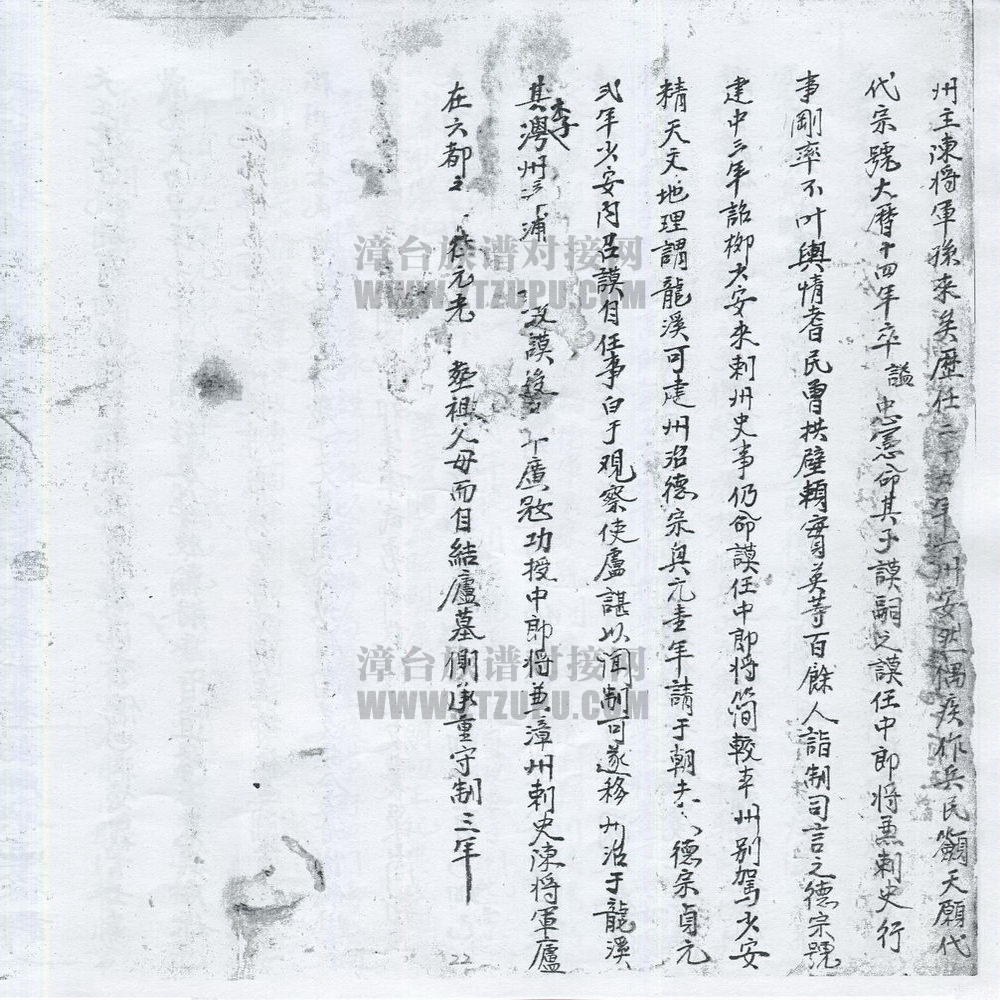 州主陳將軍孫來矣歷仕二十九年一州安然偶疾作兵民籲天願代
代宗號大曆十四年卒謚忠憲命其子謨嗣之謨任中郎將兼刺史行
事剛率不叶輿情耆民曾拱璧賴寳英等百餘人詣制司言之德宗號
建中三年詔柳少安來刺州史事仍命謨任中郎將簡較本州別駕少安
精天文地理謂龍溪可建州治德宗興元壹年請于朝未 德宗貞元
弍年少安內召謨自任事白于觀察使盧諶以聞制可遂移州治于龍溪
其李灣州 浦 設謨 平廣寇功授中郎將兼漳州刺史陳將軍廬
在六都 元光 塟祖父母而自結廬墓側承重守制三年
22
漳台族谱对接网
WWW.ZTZUPU.COM
漳台族谱对接网
WWW.ZTZUPU.COM